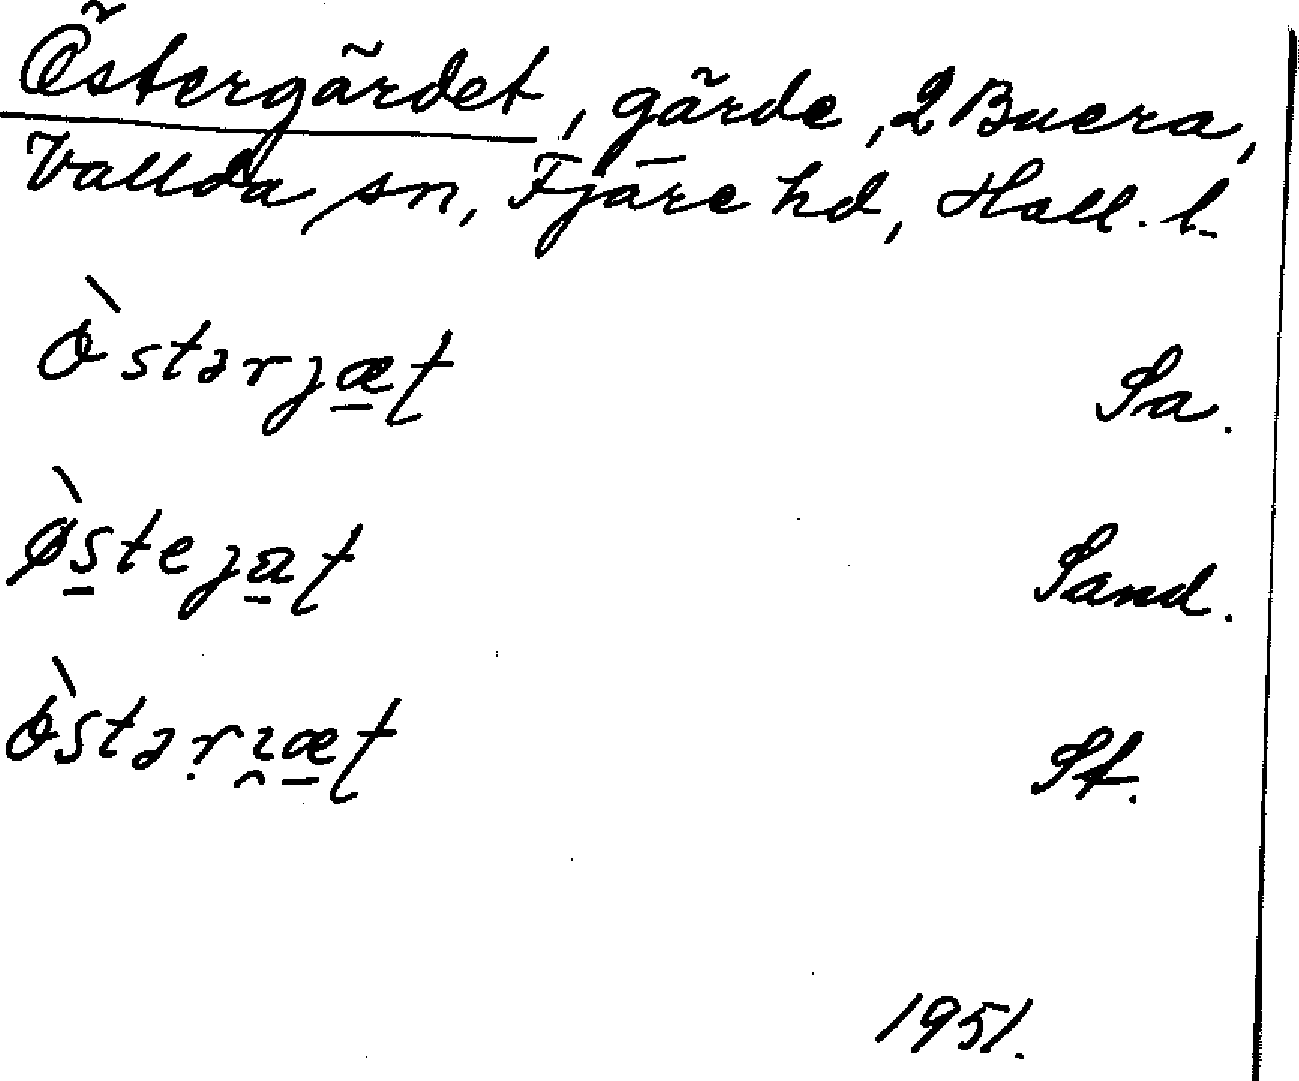 Östergärdet, gärde, 2 Buera,
Vallda sn, Fjäre hd, Hall. l.
ò̀stərjæ̠ʈ Sa.
ø̀s̠teja̠ʈ Sand.
ò̀stəṛɿ̯æ̠ʈ St.
1951.